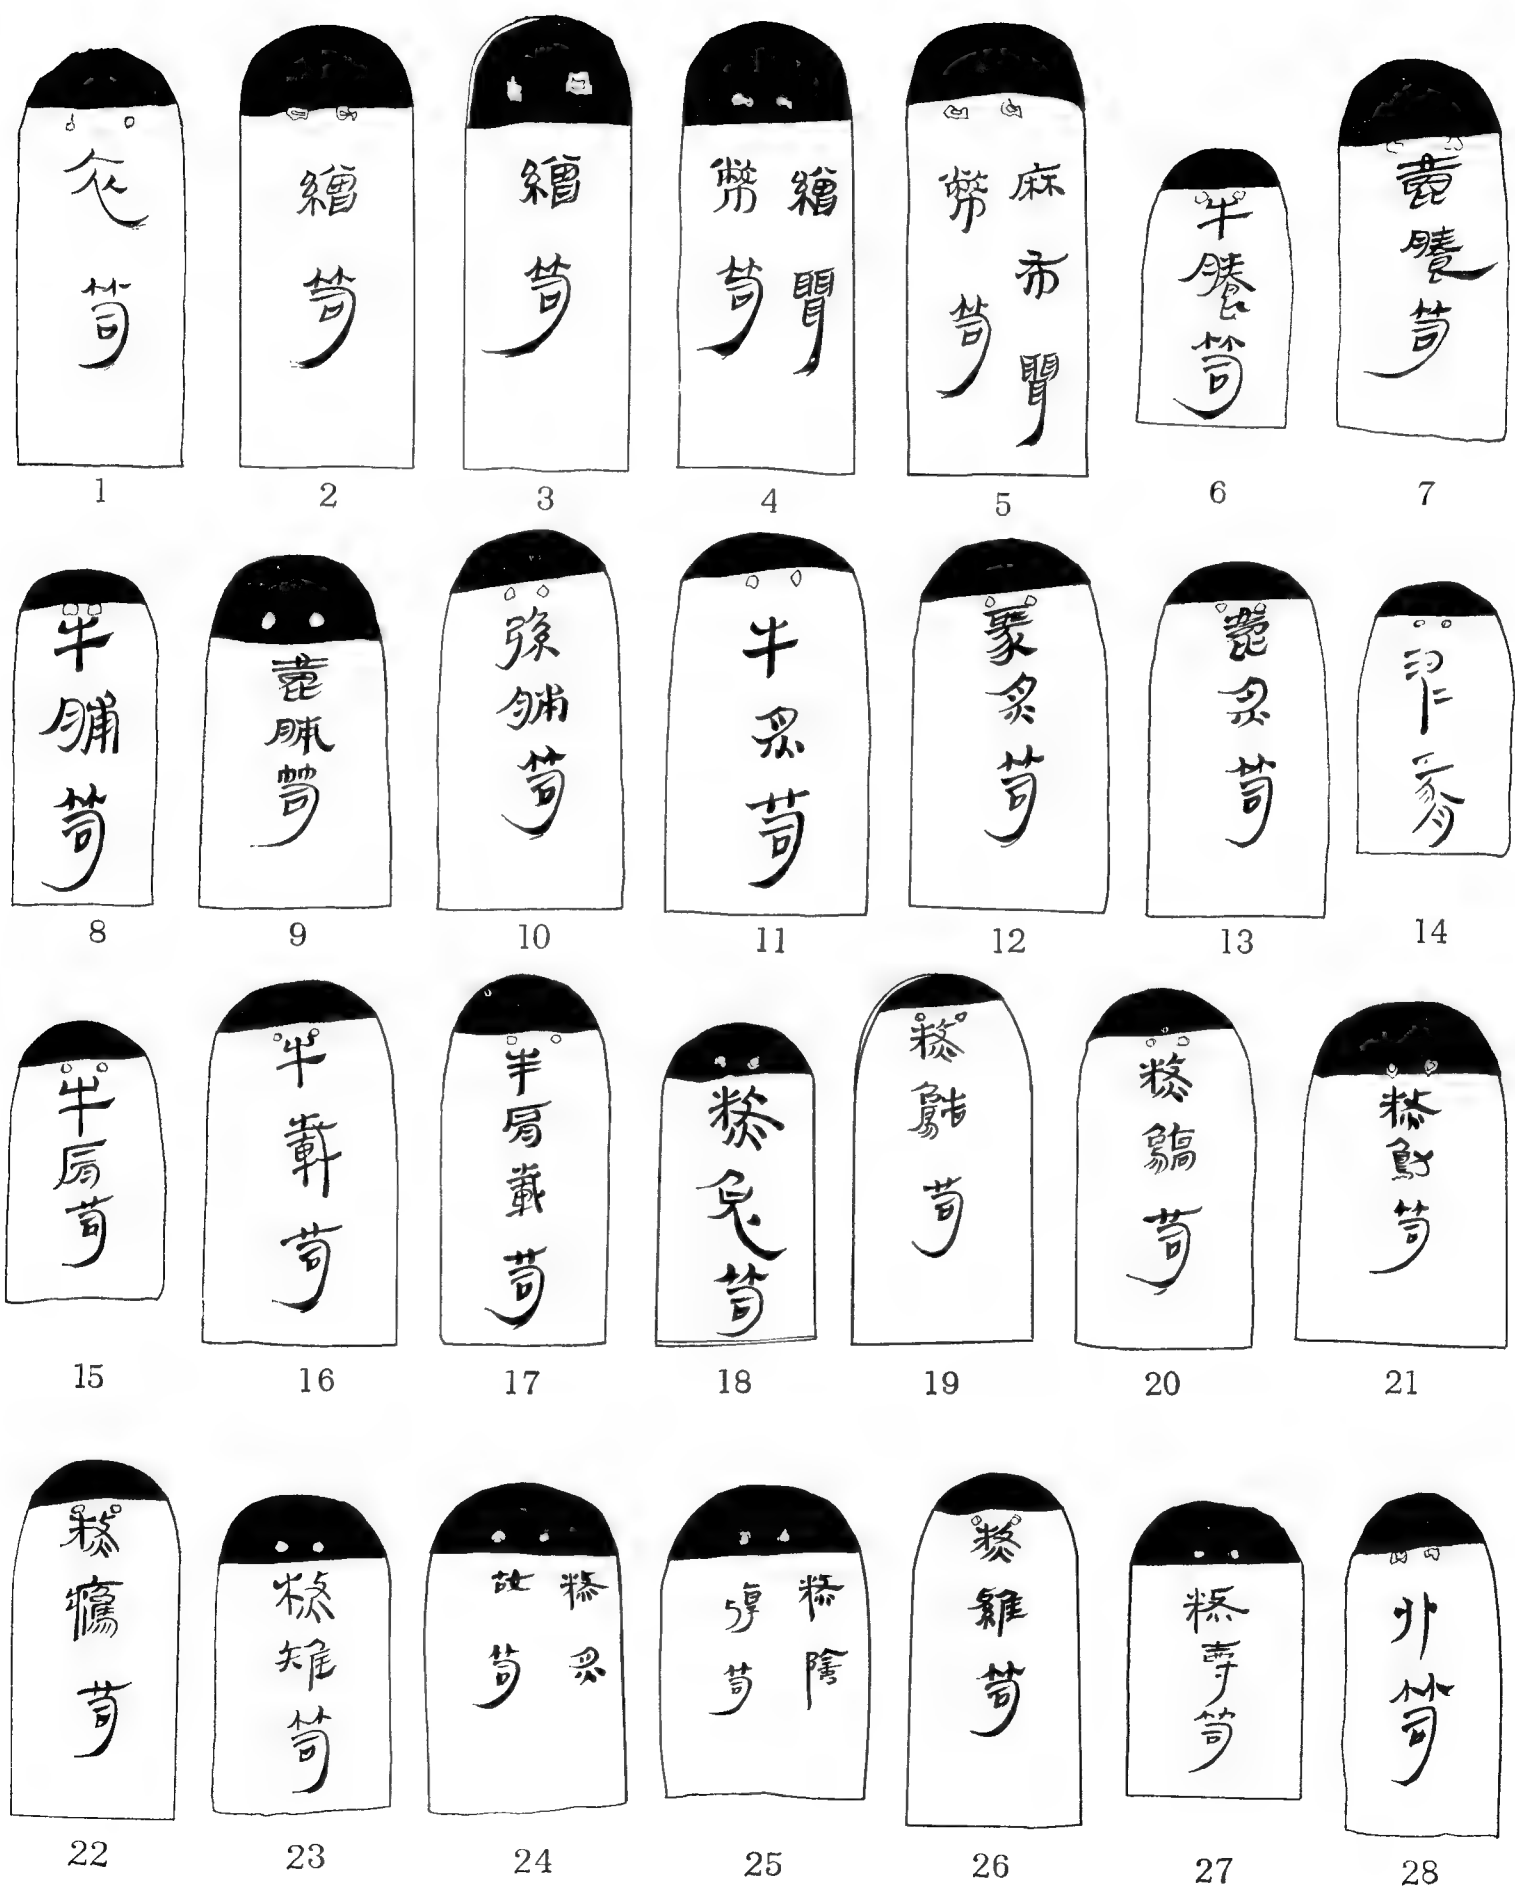 衣笥
1
繒笥
2
繒笥
3
繒聶
幣笥
4
麻布聶
幣笥
5
牛笥
6
鹿笥
7
牛脯笥
8
鹿脯笥
9
脯笥
10
牛炙笥
11
炙笥
12
鹿炙笥
13
14
牛肩笥
15
牛載笥
16
羊肩載笥
17
熬兔笥
18
熬鵠笥
19
熬笥
20
熬笥
21
熬笥
22
熬雉笥
23
熬炙
姑笥
24
熬陰
笥
25
熬雞笥
26
熬笥
27
卵笥
28